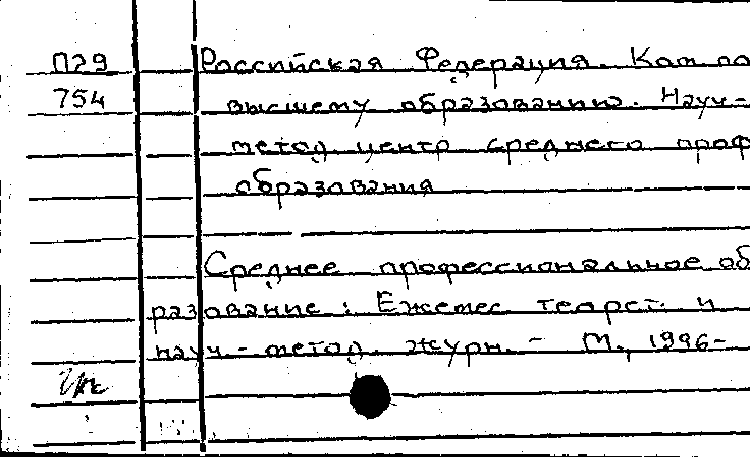 П29 Российская Федерация. Ком по
754 высшему образованию. Науч-
метод центр среднего проф
образования
Среднее профессиональное об
разование: Ежемес теорет. и
науч-метод. журн. - М., 1996-